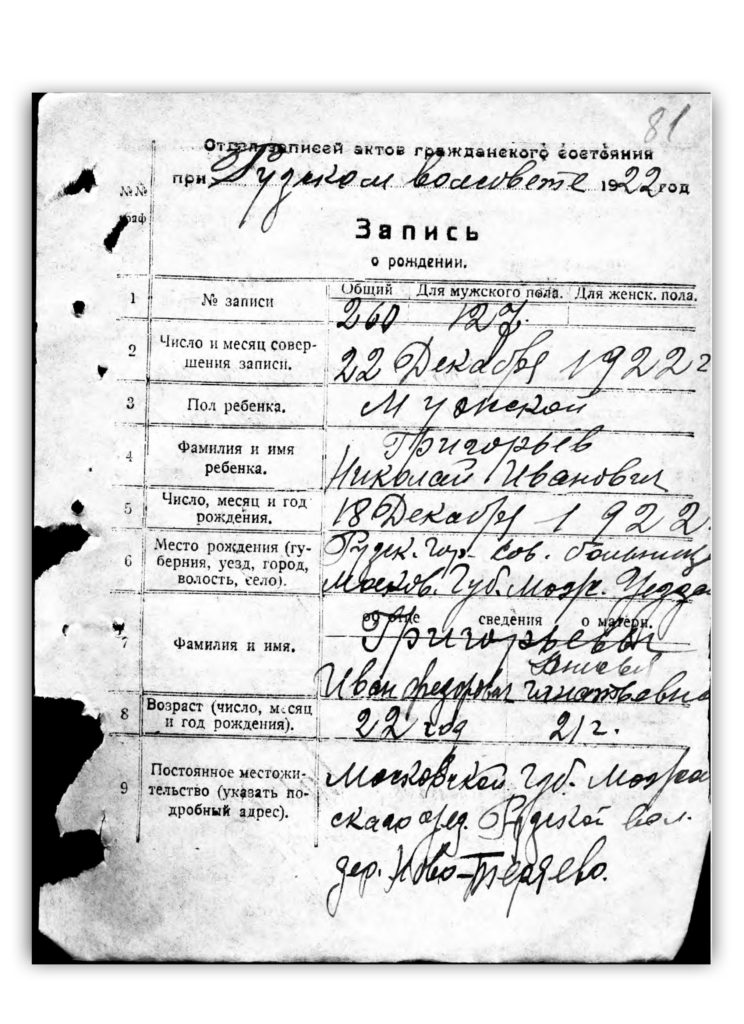 81
Отдел записей актов гражданского состояния
при Рузском волсовете 1922 год
№№ граф
Запись
о рождении.
1 № записи Общий Для мужского пола. Для женск. пола.
260 127
2 Число и месяц совер-
шения записи. 22 Декабря 1922 г
3 Пол ребенка. Мужской
4 Фамилия и имя
ребенка. Григорьев
Николай Иванович
5 Число, месяц и год
рождения. 18 Декабря 1922
6 Место рождения (гу-
берния, уезд, город,
волость, село). Рузск. Гор. сов. больниц
Москов. Губ. Можр. Уезда
об отце сведения о матери.
7 Фамилия и имя. Григорьевы
Иван Федорович Игнатьевна
8 Возраст (число, месяц
и год рождения). 22 год 21 г.
9 Постоянное местожи-
тельство (указать по-
дробный адрес). Московской Губ. Можа
скаго уезд. Рузской вол.
дер. Ново-